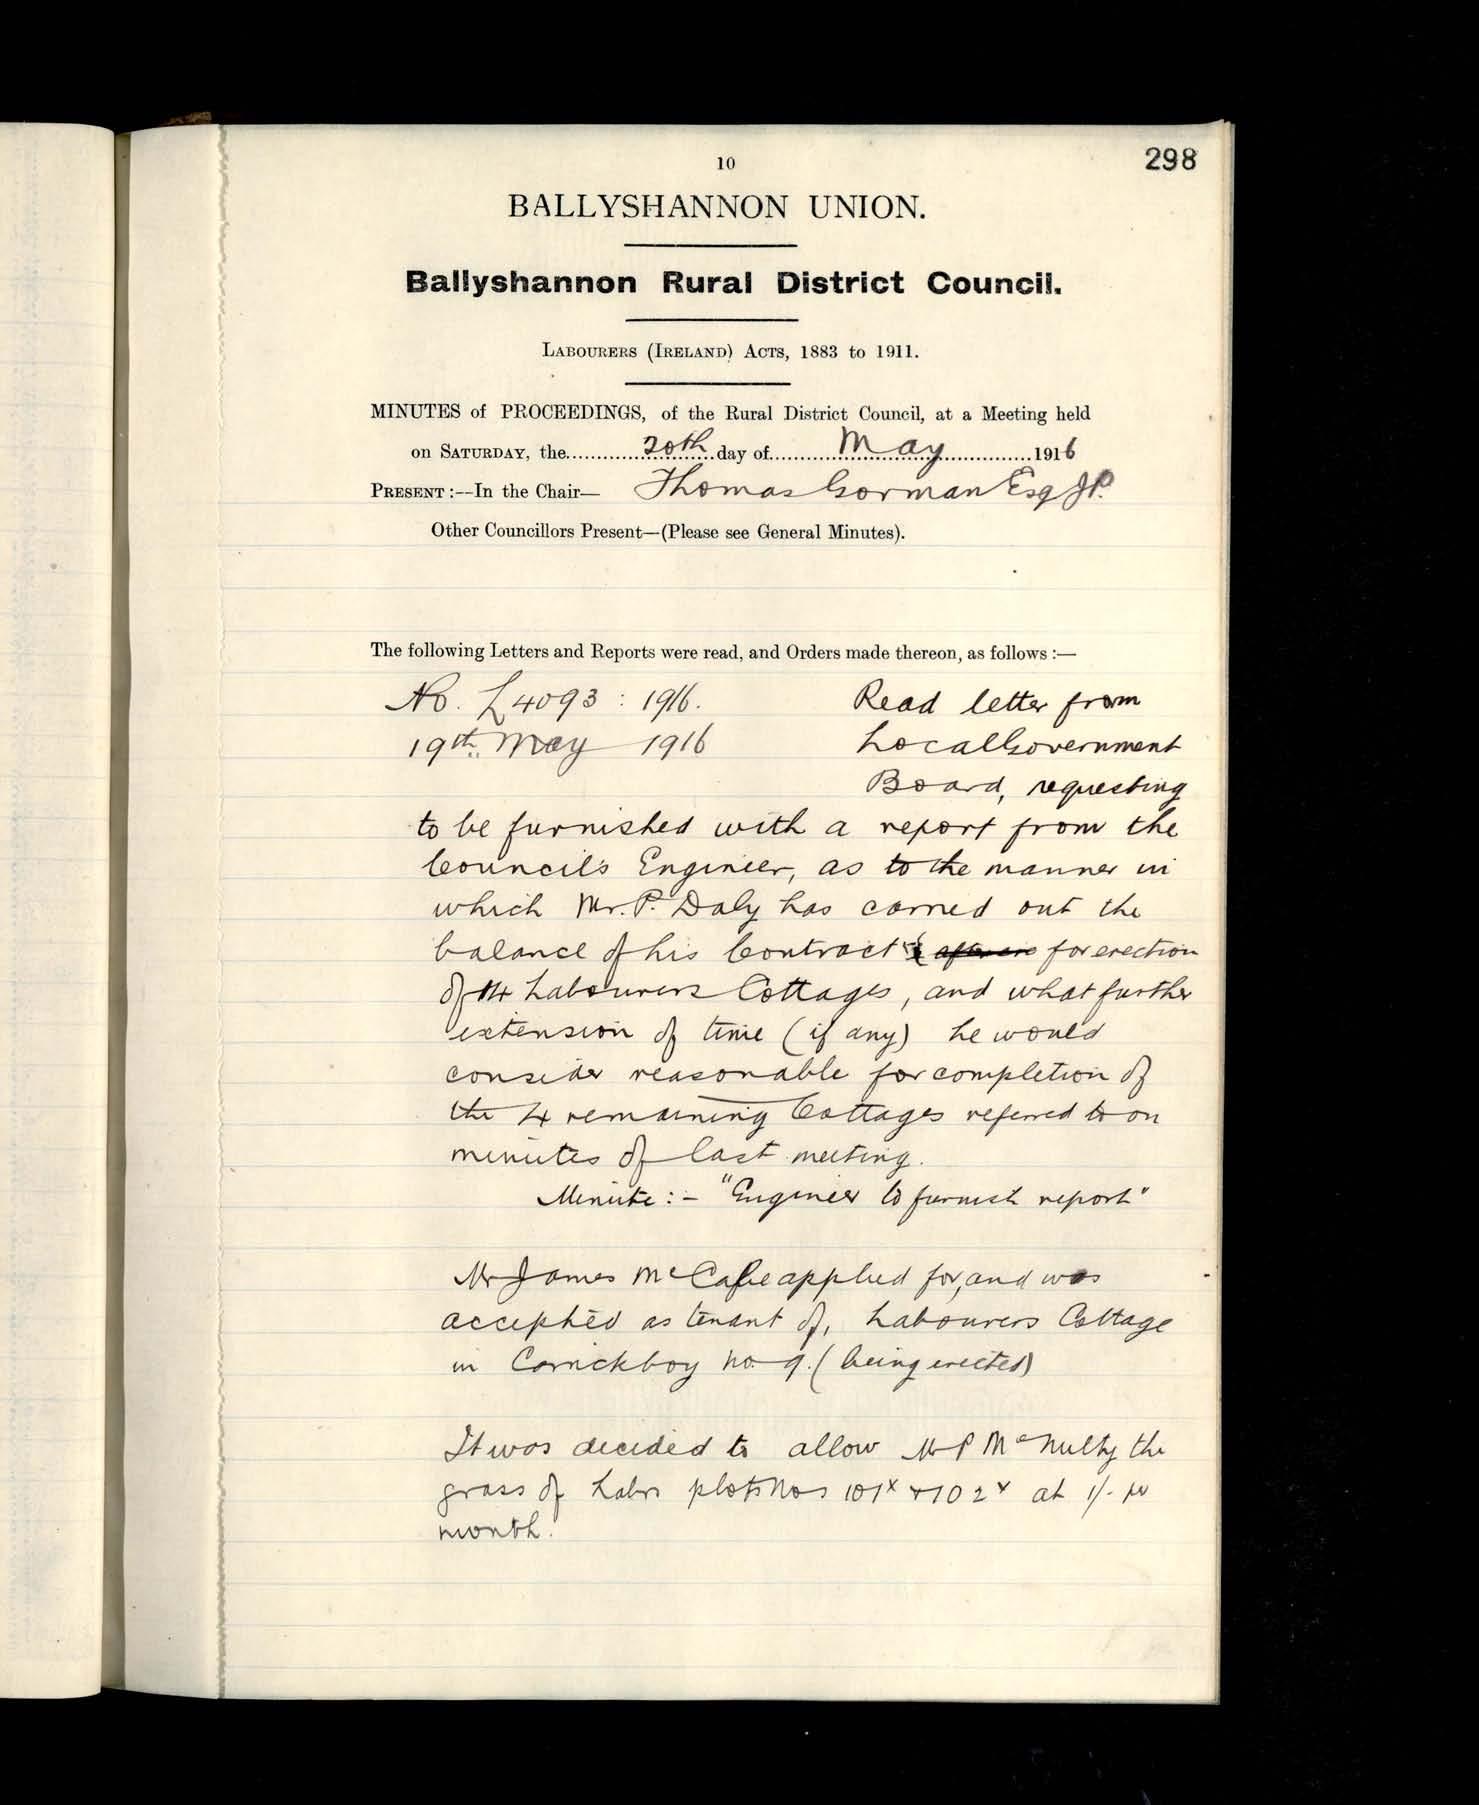 10
298
BALLYSHANNON UNION.
Ballyshannon Rural District Council.
LABOURERS (IRELAND) ACTS, 1883 to 1911.
MINUTES of PROCEEDINGS, of the Rural District Council, at a Meeting held
on SATURDAY, the 20th day of May 1916
PRESENT:--In the Chair— Thomas Gorman Esq J.P.
Other Councillors Present—(Please see General Minutes).
The following Letters and Reports were read, and Orders made thereon, as follows :—
No. L 4093 : 1916. Read letter from
19th May 1916 Local Government
Board, requesting
to be furnished with a report from the
Council's Engineer, as to the manner in
which Mr. P. Daly has carried out the
balance of his Contract for erection
of 14 Labourers Cottages, and what further
extension of time (if any) he would
consider reasonable for completion of
the 4 remaining Cottages referred to on
minutes of last meeting.
Minute :- "Engineer to furnish report"
Mr James McCafie applied for, and was
accepted as tenant of, Labourers Cottage
in Carrickboy No. 9. (being erected)
It was decided to allow Mr P McNulty the
grass of Labrs plots Nos 101x + 102x at 1/- per
month.